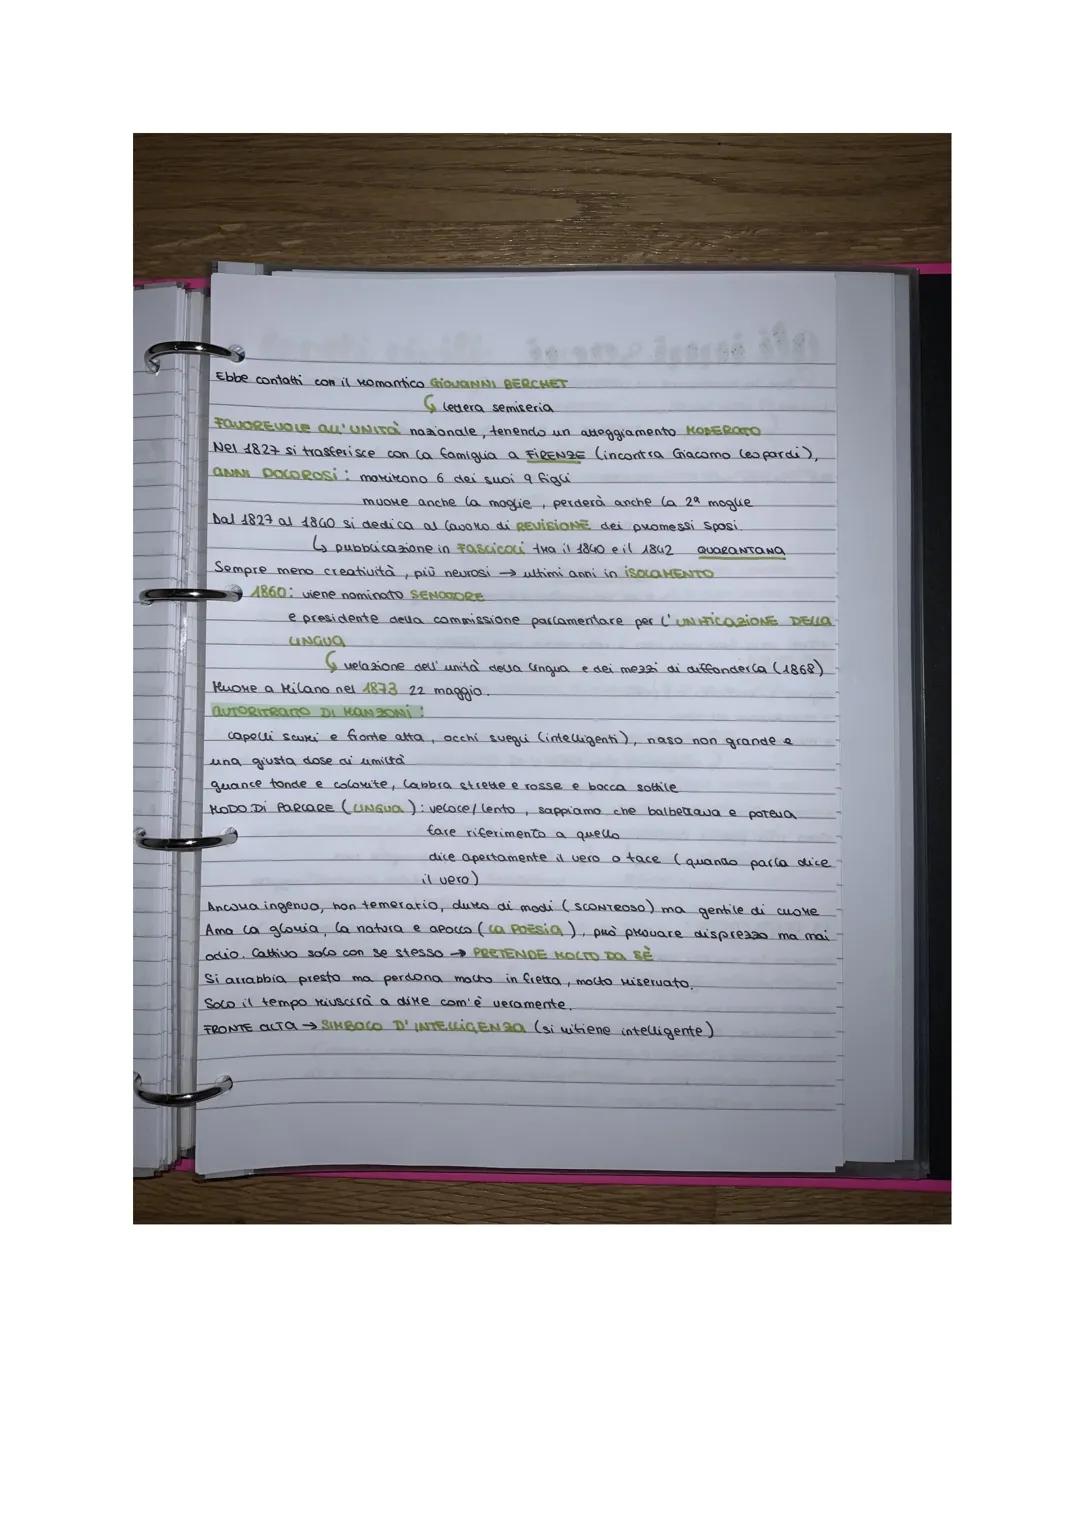 Ebbe contatti con il romantico GIOVANNI BERCHET
↳ lettera semiseria
FAVOREVOLE ALL'UNITÀ nazionale, tenendo un atteggiamento MODERATO
Nel 1827 si trasferisce con la famiglia a FIRENZE (incontra Giacomo Leopardi),
ANNI DOLOROSI: morirono 6 dei suoi 9 figli
muore anche la moglie, perderà anche la 2ª moglie
Dal 1827 al 1840 si dedica al lavoro di REVISIONE dei promessi sposi.
↳ pubblicazione in FASCICOLI tra il 1840 e il 1842 QUARANTANA
Sempre meno creatività, più neurosi → ultimi anni in ISOLAMENTO
1860: viene nominato SENATORE
e presidente della commissione parlamentare per l'UNIFICAZIONE DELLA
LINGUA
↳ relazione dell'unità della lingua e dei mezzi di diffonderla (1868)
Muore a Milano nel 1873 22 maggio.
AUTORITRATTO DI MANZONI:
capelli scuri e fronte alta, occhi svegli (intelligenti), naso non grande e
una giusta dose di umiltà
guance tonde e colorite, labbra strette e rosse e bocca sottile
MODO DI PARLARE (LINGUA): veloce/lento, sappiamo che balbettava e poteva
fare riferimento a quello
dice apertamente il vero o tace (quando parla dice
il vero)
Ancora ingenuo, non temerario, duro di modi (SCONTROSO) ma gentile di cuore
Ama la gloria, la natura e apollo (LA POESIA), può provare disprezzo ma mai
odio. Cattivo solo con se stesso → PRETENDE MOLTO DA SÈ
Si arrabbia presto ma perdona molto in fretta, molto riservato.
Solo il tempo riuscirà a dire com'è veramente.
FRONTE ALTA → SIMBOLO D'INTELLIGENZA (si ritiene intelligente)